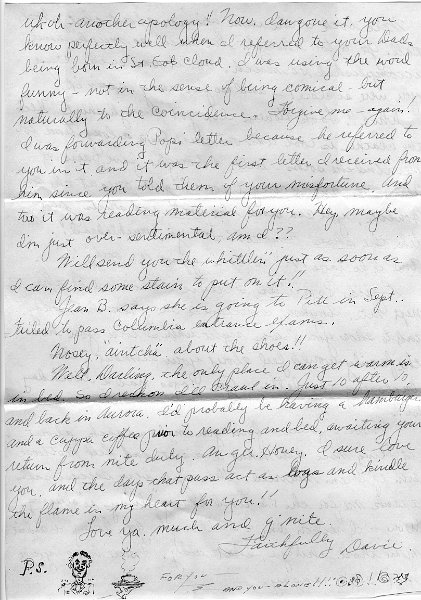 uh-oh - another apology!! Now, dawgone it, you
know perfectly well when I referred to your Dads
being born in St. Cloud, I was using the word
funny - not in the sense of being comical - but
naturally to the coincidence. Forgive me - again!
I was forwarding Pops' letter because he referred to
you in it and it was the first letter I received from
him since you told them of your misfortune, and
too it was reading material for you. Hey, maybe
I'm just over-sentimental, am I??
Will send you the whittlin' just as soon as
I can find some stain to put on it!!
Jean B. says she is going to Pitt in Sept..
Failed to pass Columbia entrance exams.
Nosey, "aintcha" about the shoes!!
Well, Darling, the only place I can get warm is
in bed so I reckon I'll crawl in. Just 10 after 10,
and back in Aurora, I'd probably be having a hamburger
and a cuppa coffee prior to reading and bed, awaiting your
return from nite duty. Angie, Honey, I sure love
you, and the days that pass act as logs and kindle
the flame in my heart for you!!
Love ya, much and g'nite.
Faithfully Davie.
P.s.
FOR YOU
AND YOU - ALONE!!!